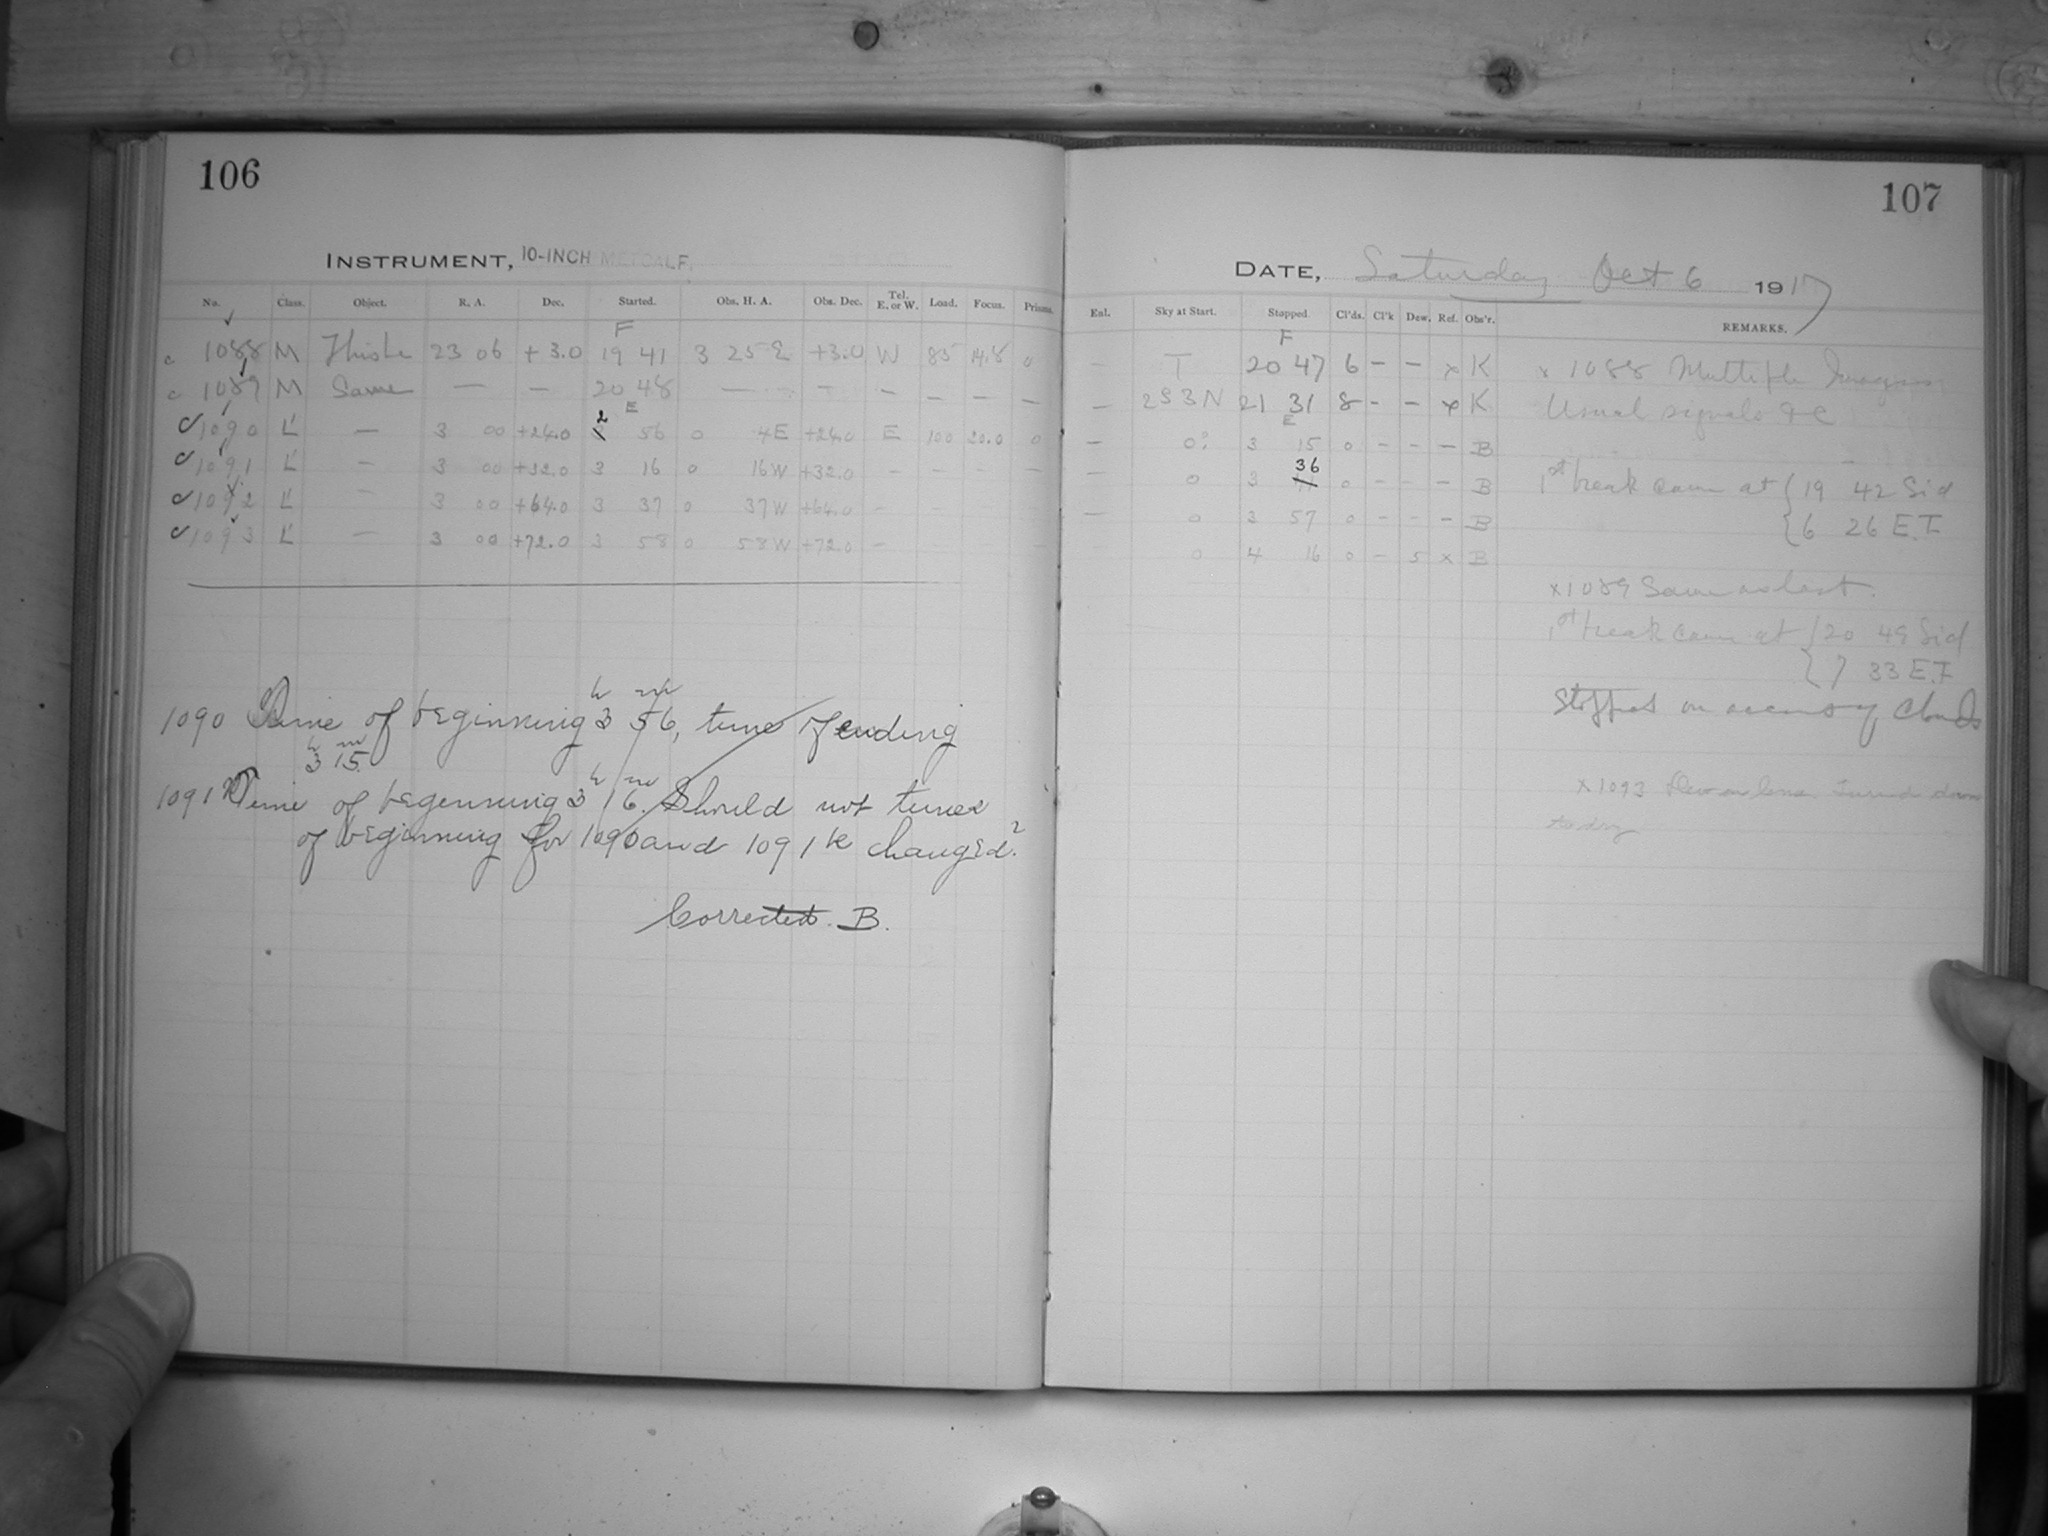 106
INSTRUMENT, 10-INCH METCALF,
No. Class. Object. R. A. Dec. Started. Obs. H. A. Obs. Dec. Tel. E. or W. Load. Focus. Prisms.
F
c 1088 M Thisbe 23 06 +3.0 19 41 3 25 E +3.0 W 85 14.8 0
c 1089 M Same — — 20 48 — — — — — — —
E
1090 L — 3 00 +24.0 2 56 0 4E +24.0 E 100 20.0 0
1091 L — 3 00 +32.0 3 16 0 16W +32.0 — — — —
1092 L — 3 00 +64.0 3 37 0 37W +64.0 — —
1093 L — 3 00 +72.0 3 58 0 58W +72.0 —
1090 Time of beginning 3h 56m, time of ending
3h 15m.
1091 Time of beginning 3h 16m. Should not times
of beginning for 1090 and 1091 be changed?
Corrected. B.
107
DATE, Saturday Oct 6 1917
Enl. Sky at Start. Stopped. Cl'ds. Cl'k Dew. Ref. Obs'r. REMARKS.
F
— T 20 47 6 — — x K
— 2S3N 21 31 8 — — x K
E
— 0? 3 15 0 — — — B
— 0 3 36 0 — — — B
— 0 3 57 0 — — — B
0 4 16 0 — 5 x B
x 1088 Multiple Images
Usual signals &c
1st break came at { 19 42 Sid
{ 6 26 E.T
x 1089 Same as last.
1st break came at { 20 49 Sid
{ 7 33 E.T
Stopped on account of Clouds
x 1093 Dew on lens. Turned down
to dry